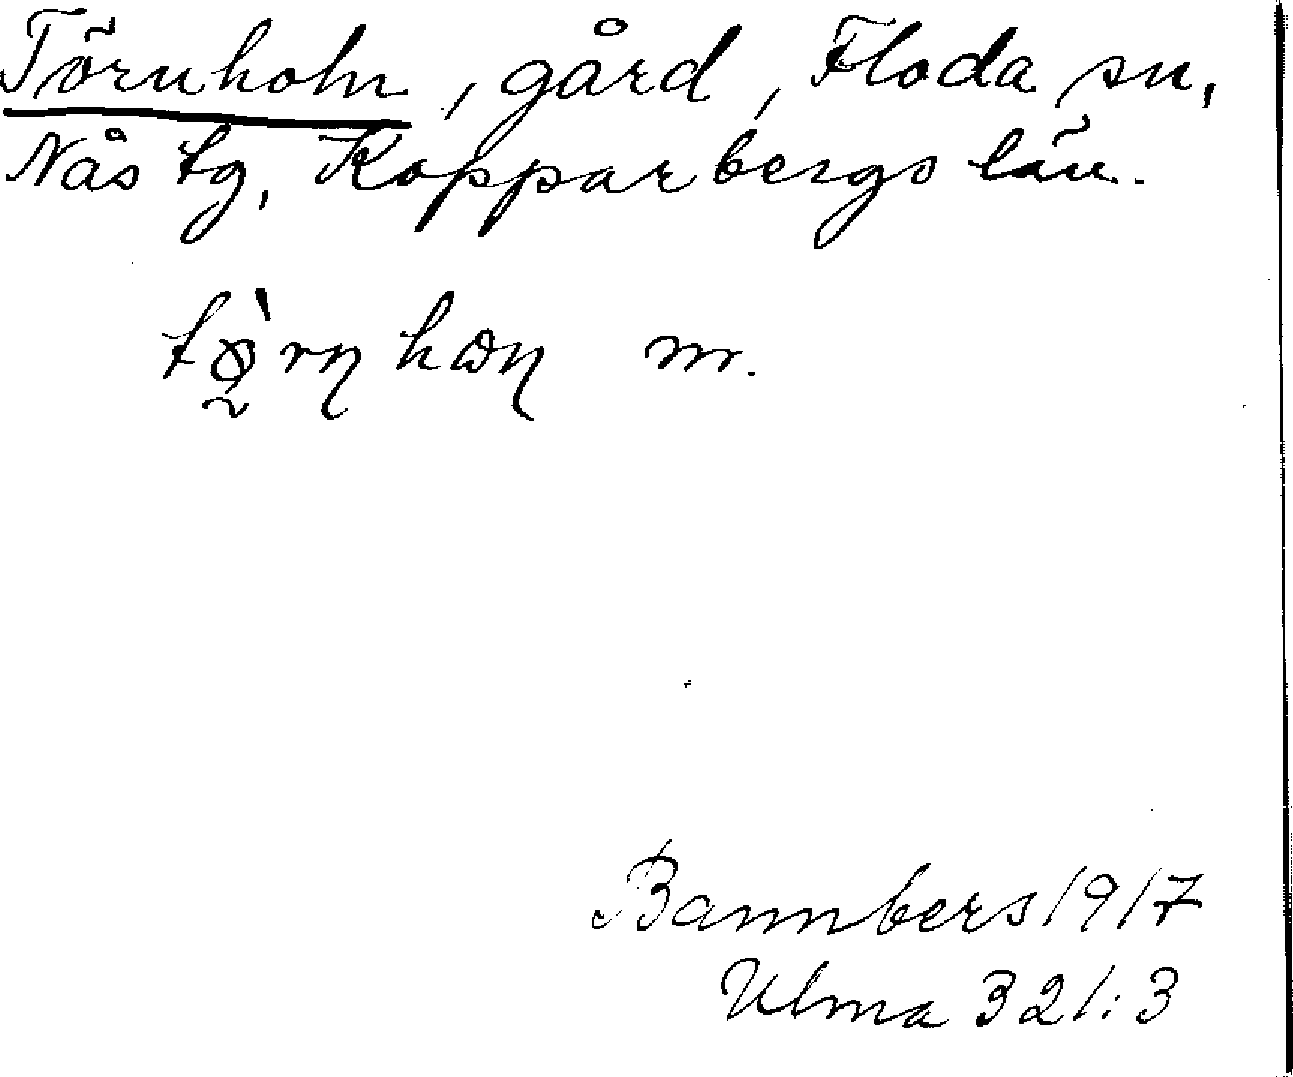 Törnholm, gård, Floda sn,
Nås tg, Kopparbergs län.
m.
Bannbers 1917
Ulma 321:3